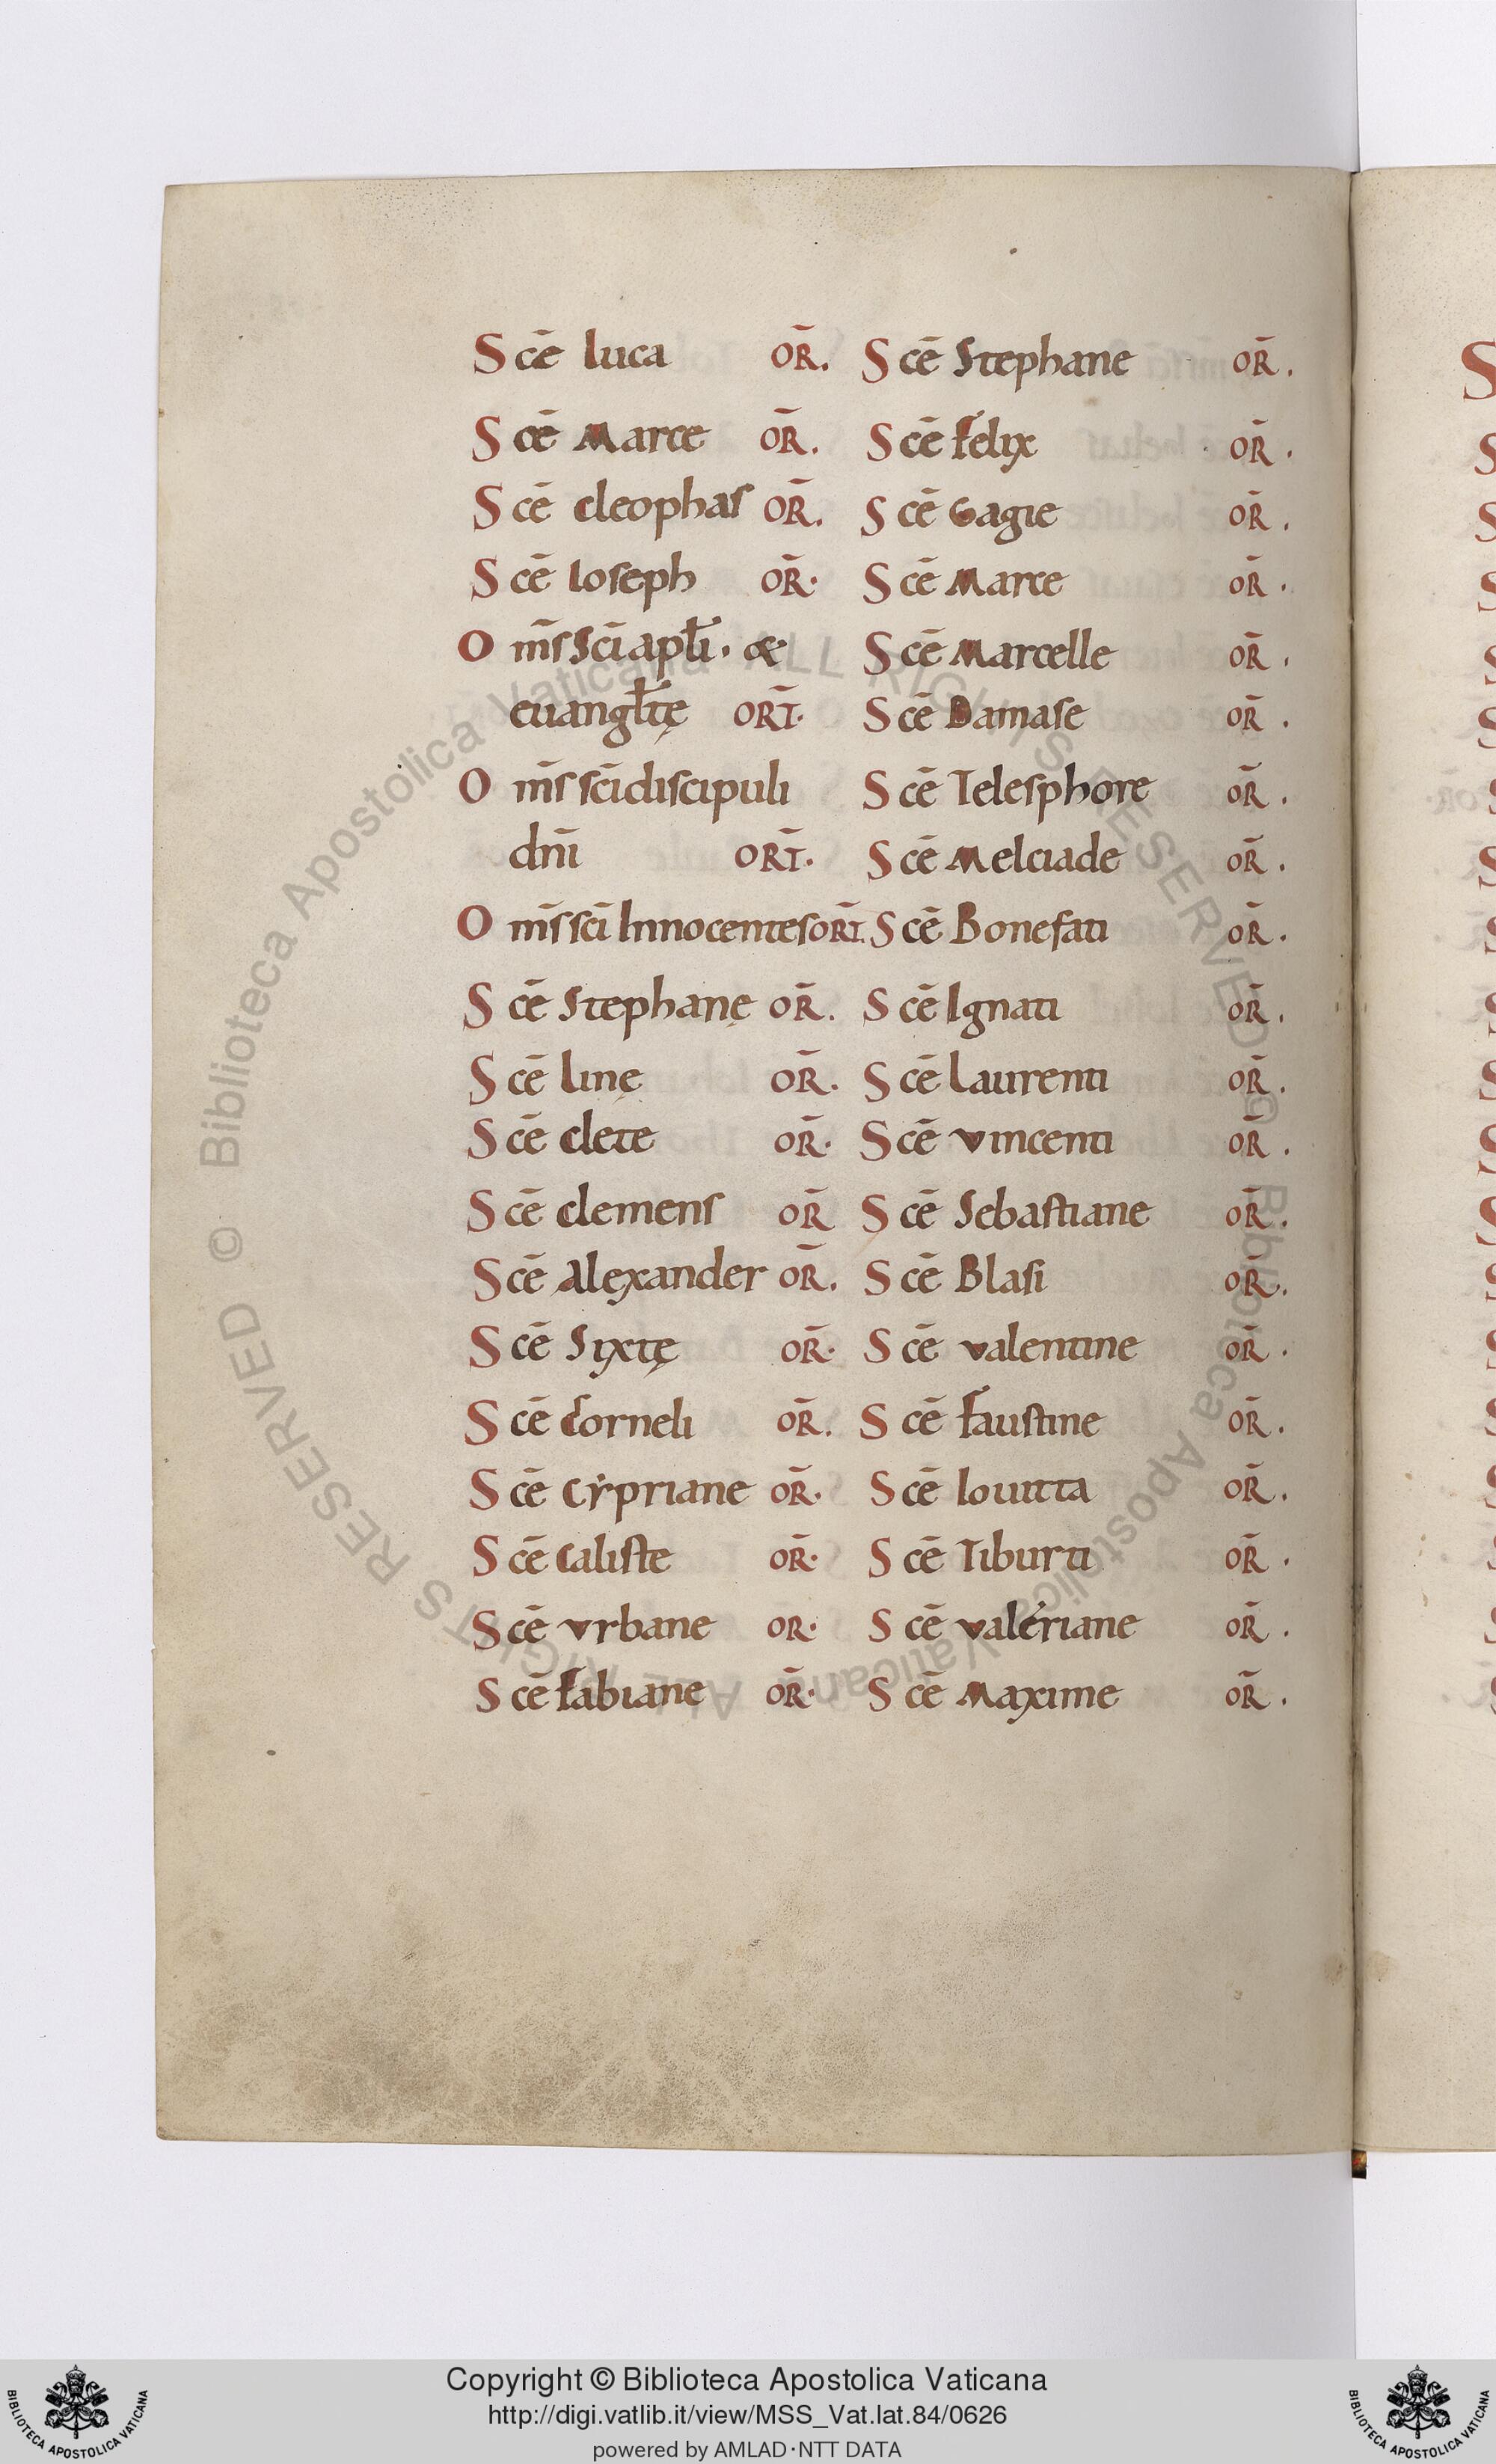 Scē luca OR̄.
Scē Marce OR̄.
Scē cleophas OR̄.
Scē Ioseph OR̄.
Om̄s Sc̄i apl̄i. &
euangl̄tę ORT̄.
Om̄s sc̄i discipuli
dn̄i ORT̄.
Om̄s sc̄i Innocentes ORT̄.
Scē Stephanę OR̄.
Scē linę OR̄.
Scē clete OR̄.
Scē clemens OR̄
Scē Alexander OR̄.
Scē Sixtę OR̄.
Scē Corneli OR̄.
Scē Cẏpriane OR̄.
Scē Caliste OR̄.
Scē vrbane OR.
Scē fabiane OR̄.
Scē Stephane OR̄.
Scē felix OR̄.
Scē Gagie OR̄.
Scē Marce OR̄.
Scē Marcelle OR̄.
Scē Damase OR̄.
Scē Telesphore OR̄.
Scē Melciade OR̄.
Scē Bonefati OR̄.
Scē Ignati OR̄.
Scē laurenti OR̄.
Scē vincenti OR̄.
Scē Sebastiane OR̄.
Scē Blasi OR̄.
Scē valentine OR̄.
Scē faustine OR̄.
Scē Iouitta OR̄.
Scē Tiburti OR̄.
Scē valériane OR̄.
Scē Maxime OR̄.
© Biblioteca Apostolica Vaticana ALL RIGHTS RESERVED © Biblioteca Apostolica Vaticana ALL RIGHTS RESERVED
Copyright © Biblioteca Apostolica Vaticana
http://digi.vatlib.it/view/MSS_Vat.lat.84/0626
powered by AMLAD·NTT DATA
BIBLIOTECA APOSTOLICA VATICANA
BIBLIOTECA APOSTOLICA VATICANA